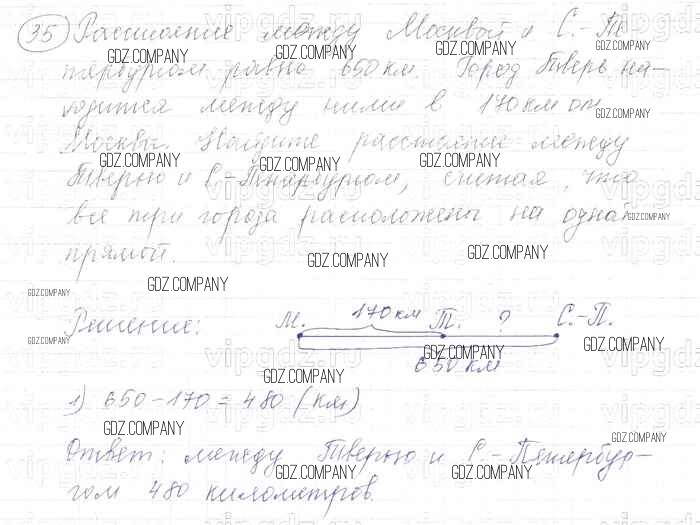 35 Расстояние между Москвой и С.-Пе-
тербургом равно 650 км. Город Тверь на-
ходится между ними в 170 км от
Москвы. Найдите расстояние между
Тверью и С.-Петербургом, считая, что
все три города расположены на одной
прямой.
Решение: М. 170 км Т. ? С.-П.
650 км
1) 650-170 = 480 (км)
Ответ: между Тверью и С.-Петербур-
гом 480 километров.
GDZ.COMPANY
vipgdz.ru